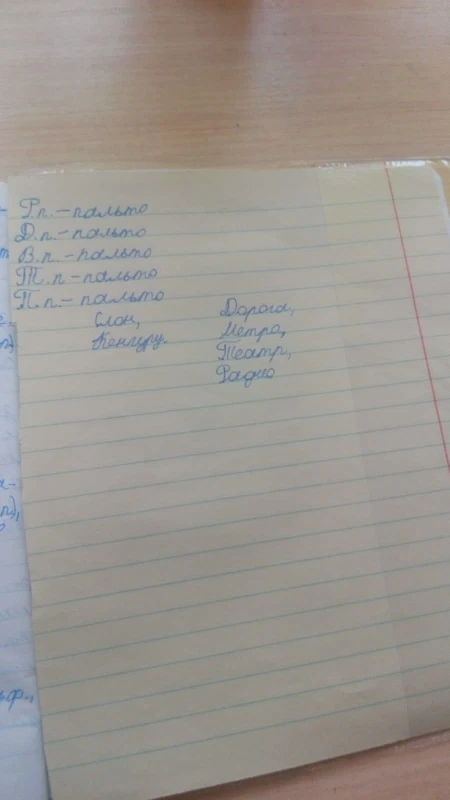 Р.п.-пальто
Д.п.-пальто
В.п.-пальто
Т.п-пальто
П.п-пальто
Слон,
Кенгуру.
Дорога,
Метро,
Театр,
Радио